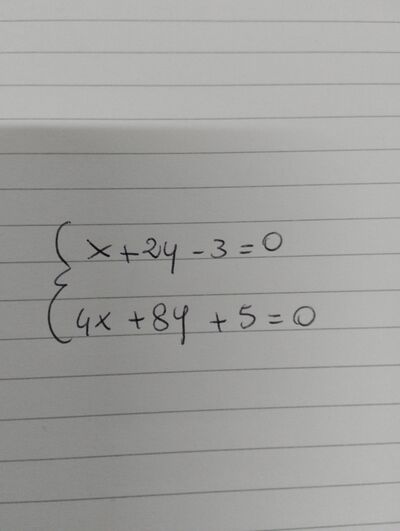 x + 2y - 3 = 0
4x + 8y + 5 = 0